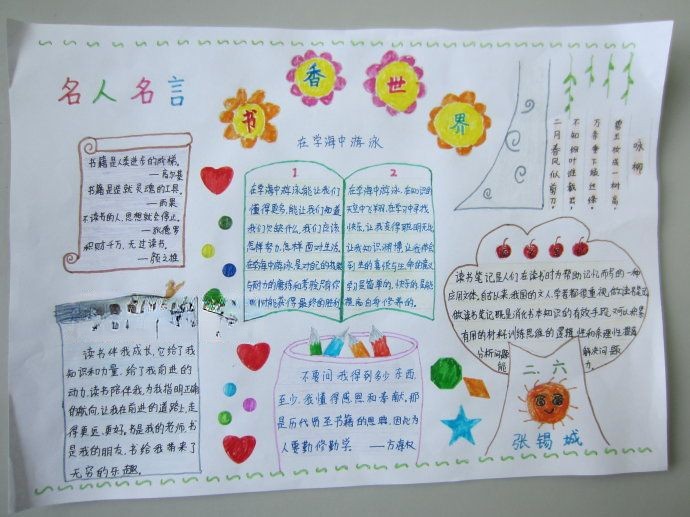 书香世界
名人名言
书籍是人类进步的阶梯。
——高尔基
书籍是造就灵魂的工具。
——雨果
不读书的人,思想就会停止。
——狄德罗
积财千万,无过读书。
——颜之推
在学海中游泳
1
在学海中游泳,能让我们
懂得更多,能让我们知道
我们欠缺什么,我们应该
怎样努力,怎样面对生活。
在学海中游泳是对自己的挑战
与耐力的磨练和考验,陪你
到何时能获得最终的胜利
2
在学海中游泳,在知识的
天空中飞翔,在学习中寻找
快乐,让我变得聪明,无比
让我知识渊博,让我体会
到生的喜悦与生命的意义
学习是简单的,快乐的,是能
提高自身修养的。
咏柳
碧玉妆成一树高,
万条垂下绿丝绦。
不知细叶谁裁出,
二月春风似剪刀。
读书伴我成长,它给了我
知识和力量,给了我前进的
动力,读书陪伴我,为我指明正确
的航向,让我在前进的道路上走
得更远、更好。书是我的老师,书
是我的朋友,书给我带来了
无穷的乐趣。
不要问我得到多少东西,
至少,我懂得恩照和奉献,那
是历代贤至书籍的恩赐,因此为
人要勤修勤学。——方海权
读书笔记是人们在读书时为帮助记忆而写的一种
应用文体。自古以来,我国的文人、学者都很重视。做读书笔记
做读书笔记既是消化书本知识的有效手段,又可以积累
有用的材料,训练思维的逻辑性和条理性,提高
分析问题 解决问题
能 力。
二、六
张锡城